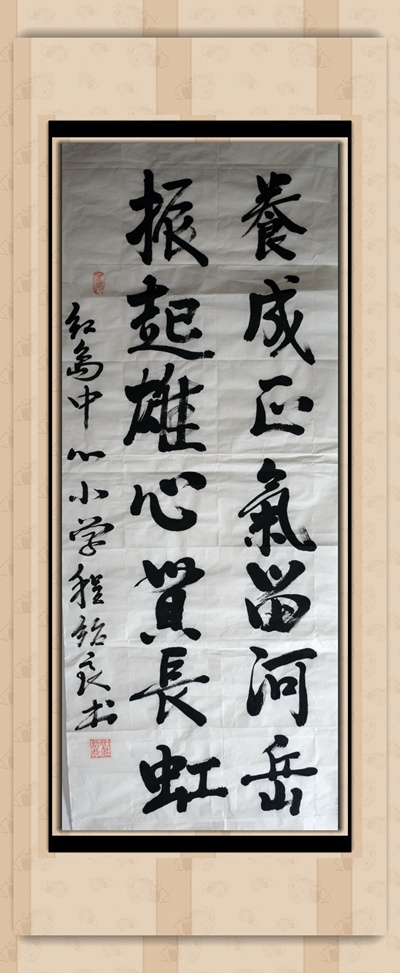 養成正氣留河岳
振起雄心貫長虹
红岛中心小学程紹良书